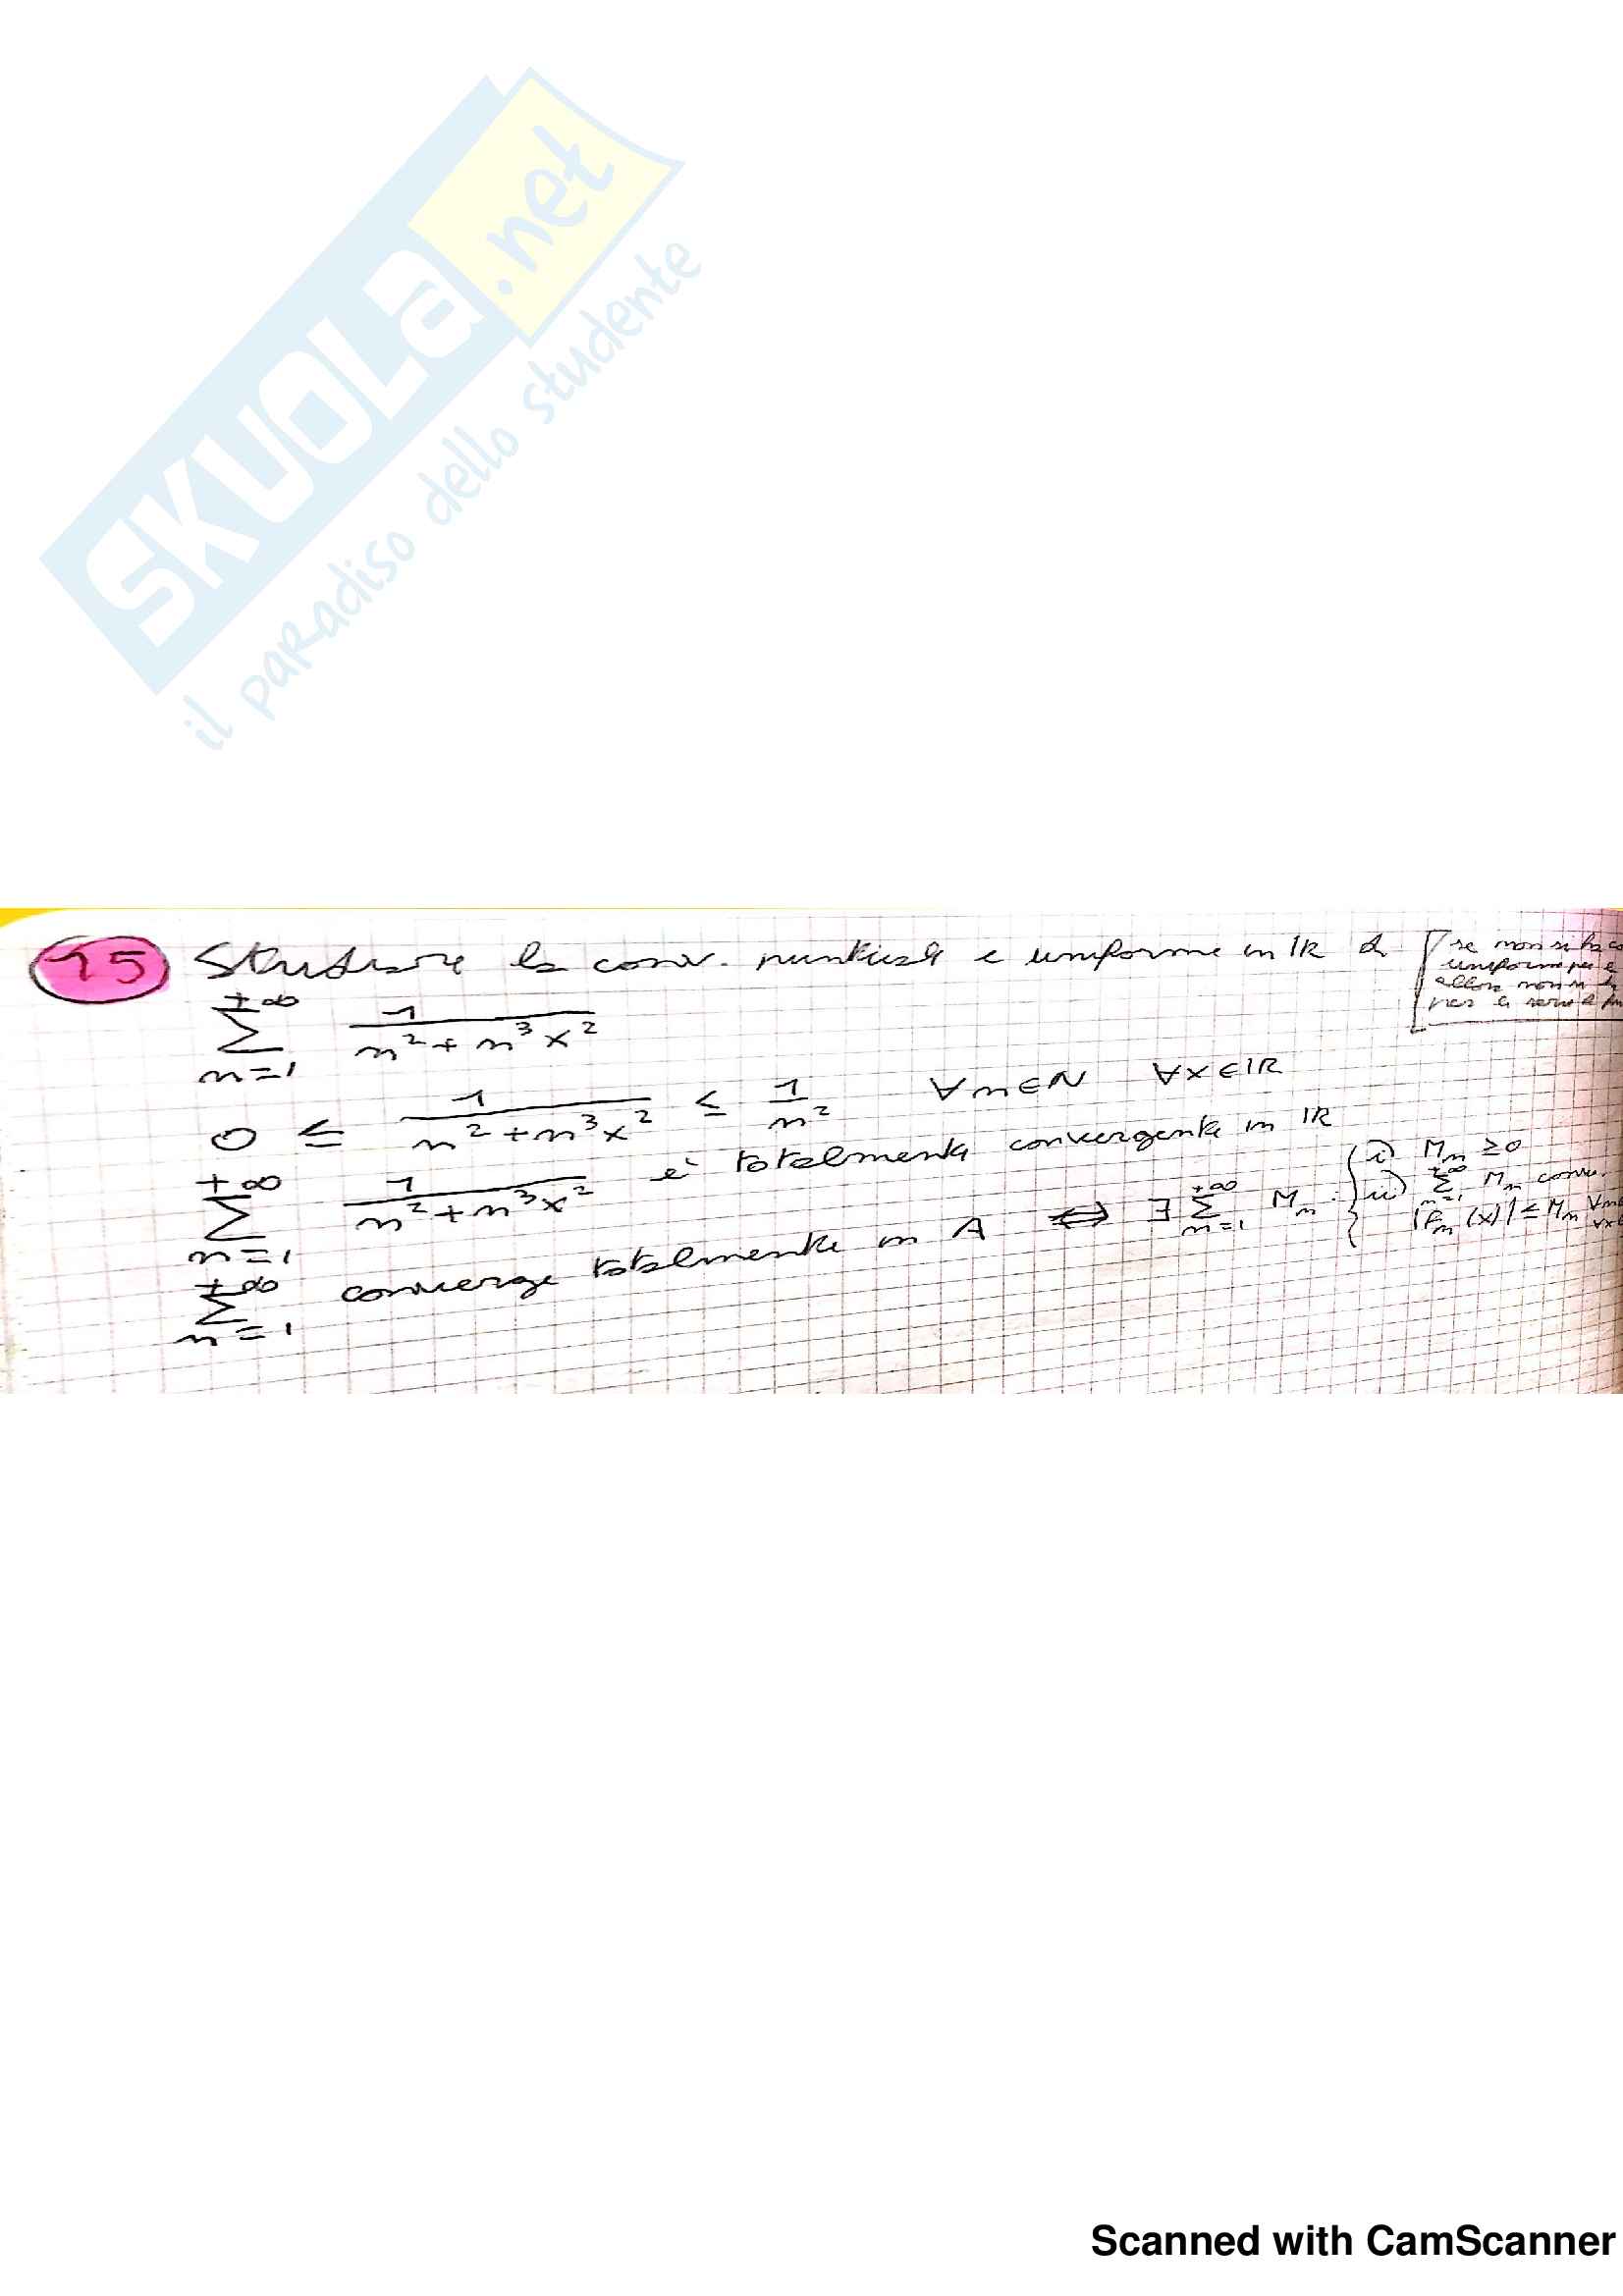 SKUOLA.net
il paradiso dello studente
15 Studiare la conv. puntuale e uniforme in ℝ di
se non si ha co
uniforme per
allora non si
per la serie
+∞
∑ 1/(n²+n³x²)
n=1
0 ≤ 1/(n²+n³x²) ≤ 1/n² ∀n∈N ∀x∈ℝ
+∞
∑ 1/(n²+n³x²) è totalmente convergente in ℝ
n=1
+∞
∑ converge totalmente in A ⟺ ∃ ∑_{n=1}^{+∞} Mn :
n=1
i) Mn ≥ 0
ii) ∑_{n=1}^{+∞} Mn conv.
|fn(x)| ≤ Mn
Scanned with CamScanner